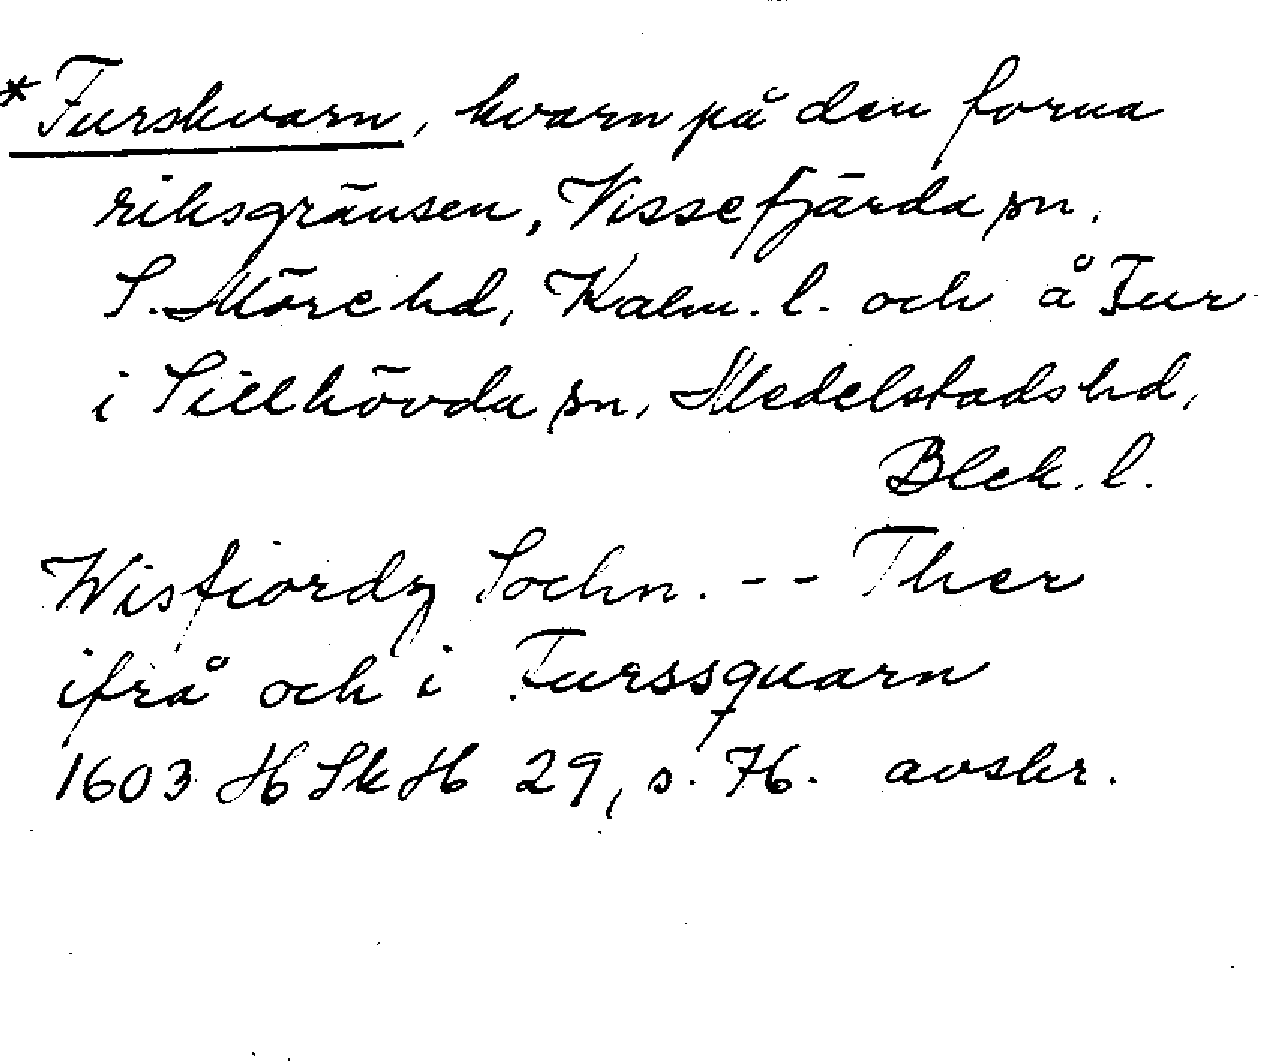 *Furskvarn, kvarn på den forna
riksgränsen, Vissefjärda sn.
S. Möre hd, Kalm. l. och å Fur
i Sillhövda sn, Medelstads hd,
Blek. l.
Wisfiordz Sochn. -- Ther
ifrå och i Furssquarn
1603 HSkH 29, s. 76. avskr.